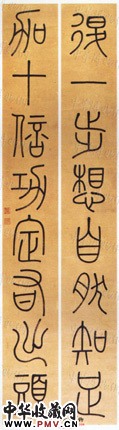 得一步想自然知足
加十倍功定有出頭
中华收藏网
WWW.PMV.CN